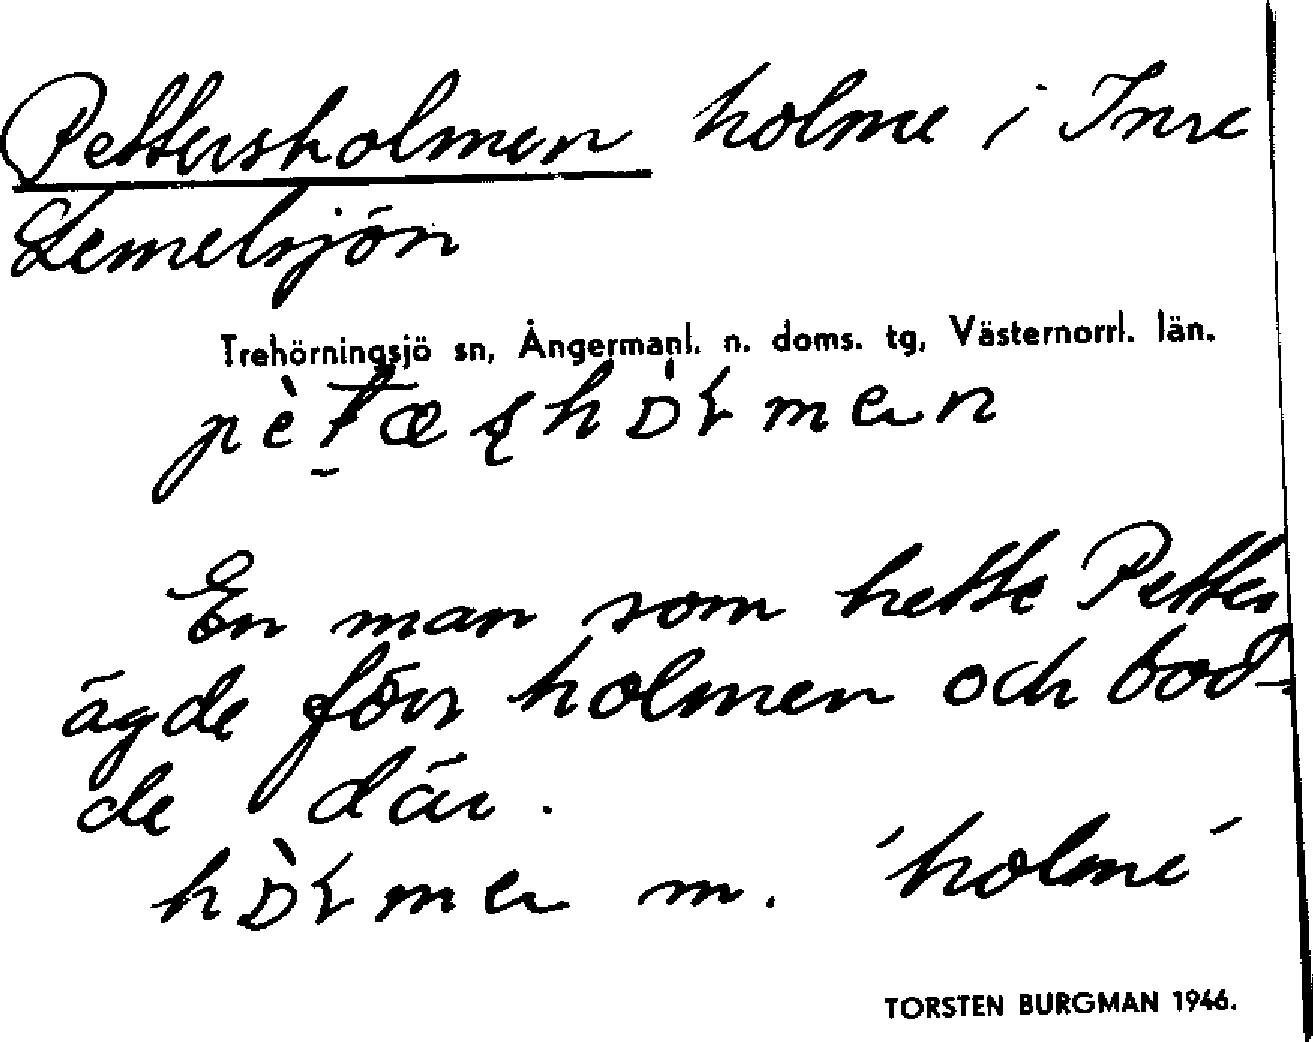 Pettersholmen holme i Inre
Lemelsjön
Trehörningsjö sn, Ångermanl. n. doms. tg, Västernorrl. län.
En man som hette Petter
ägde förr holmen och bod-
de där.
m. 'holme'
TORSTEN BURGMAN 1946.